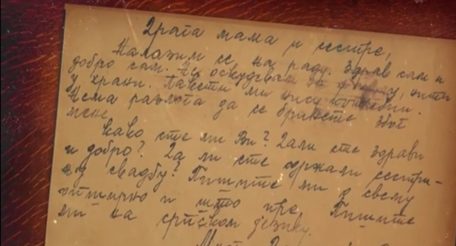 Драга мама и сестре,
Налазим се на раду. Здрав сам и
добро сам. Не оскудевам за у, нити
у храни. Пакети ми нису потребни.
Нема разлога да се бринете због
мене.
Како сте ми Ви? Дали сте здрави
и добро? Да ли сте одржали сестри-
ну свадбу? Пишите ми о свему
опширно и што пре. Пишите
ми на српском језику.